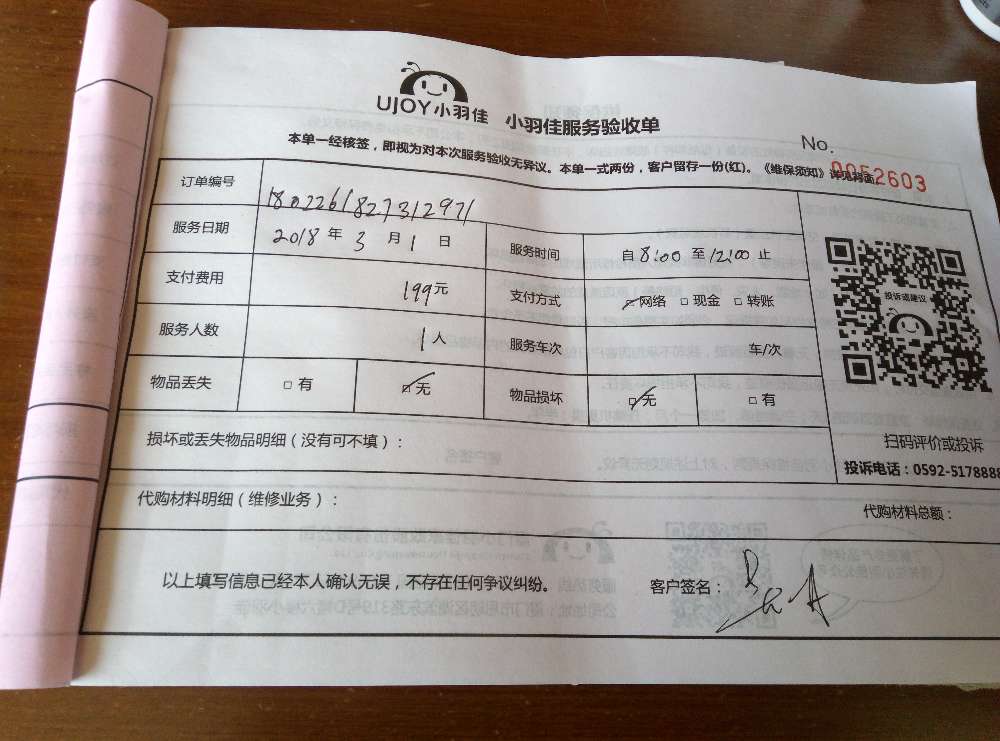 UJOY小羽佳 小羽佳服务验收单
No. 0052603
本单一经核签，即视为对本次服务验收无异议。本单一式两份，客户留存一份(红)。《维保须知》详见背面。
订单编号 1802261827312971
服务日期 2018 年 3 月 1 日 服务时间 自 8:00 至 12:00 止
支付费用 199元 支付方式 □网络 □现金 □转账
服务人数 1人 服务车次 车/次
物品丢失 □有 □无 物品损坏 □无 □有
投诉或建议
扫码评价或投诉
投诉电话：0592-5178888
损坏或丢失物品明细（没有可不填）：
代购材料明细（维修业务）： 代购材料总额：
以上填写信息已经本人确认无误，不存在任何争议纠纷。 客户签名：